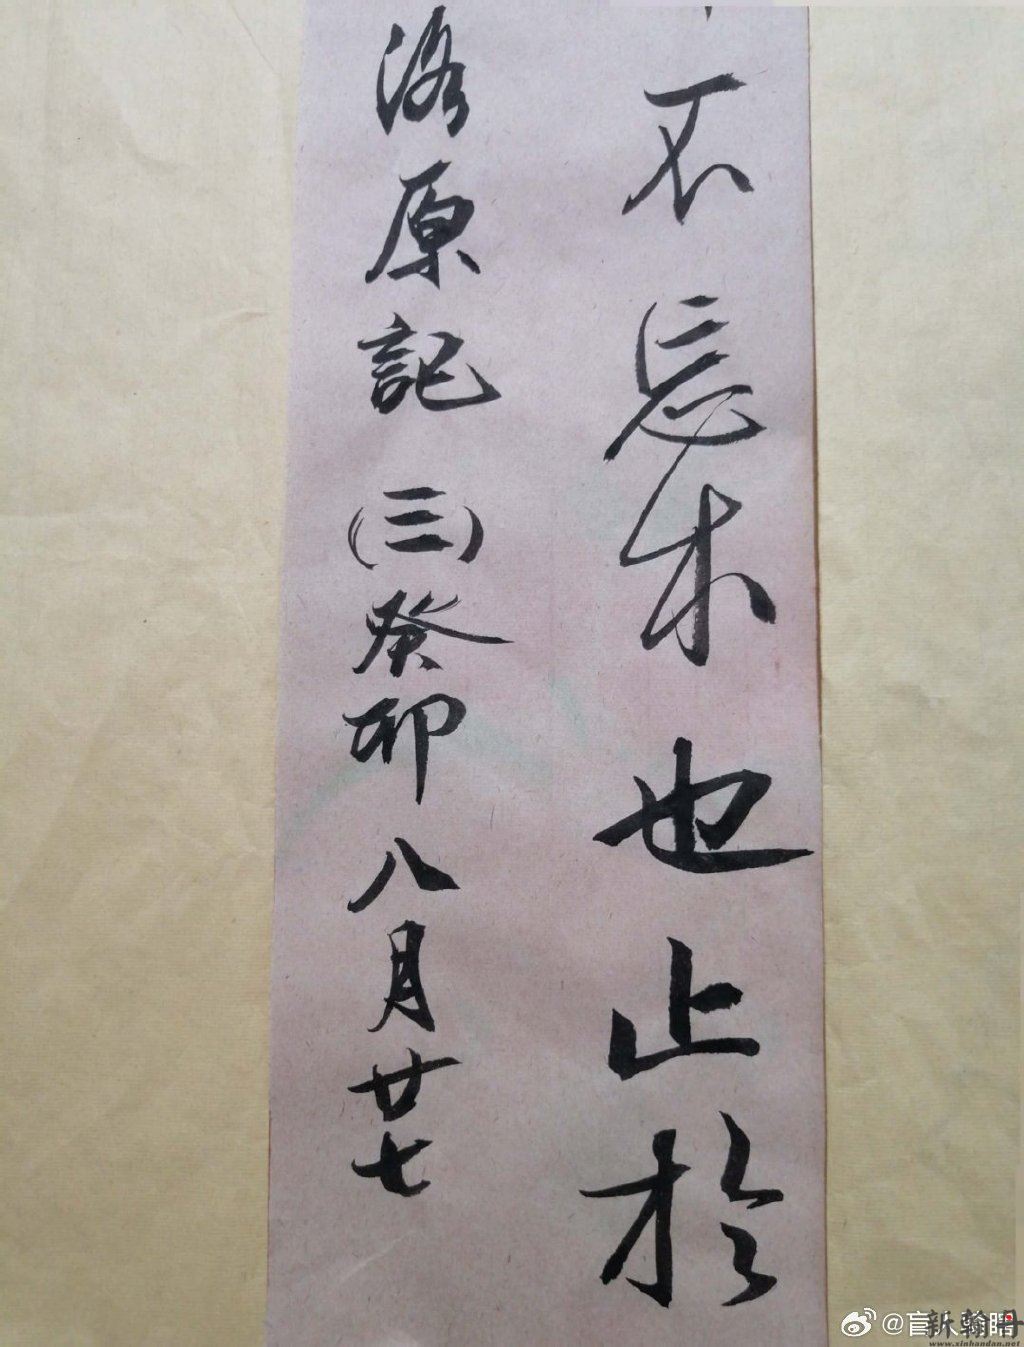 不忘本也止於
洛原記(三)癸卯八月廿七
新翰丹
www.xinhandan.net